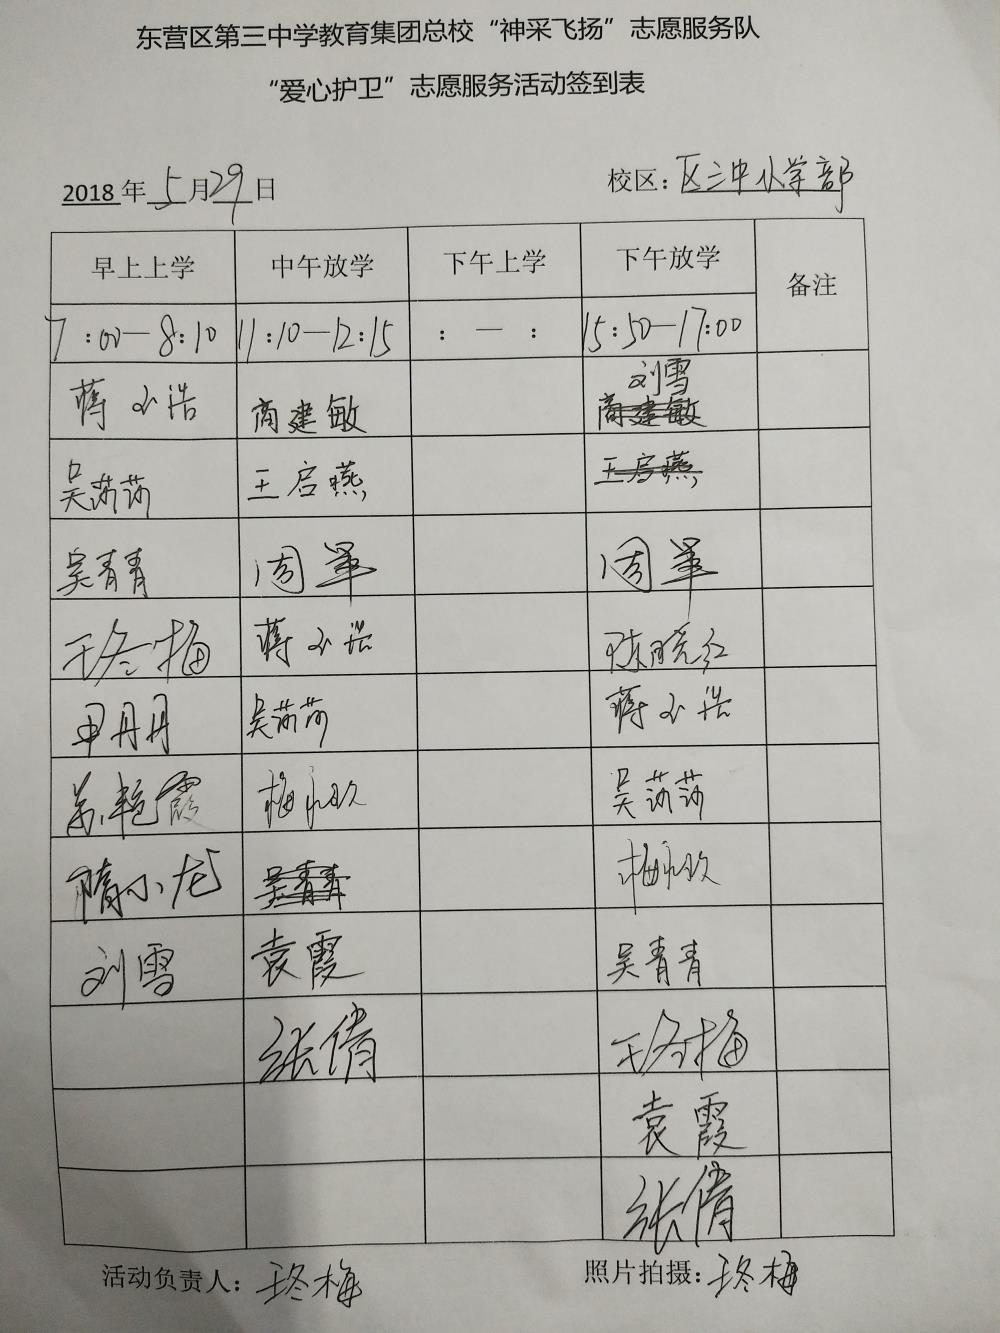 东营区第三中学教育集团总校“神采飞扬”志愿服务队
“爱心护卫”志愿服务活动签到表
2018年5月29日 校区：区三中小学部
早上上学 中午放学 下午上学 下午放学 备注
7:00—8:10 11:10—12:15 : — : 15:50—17:00
刘雪
蒋小浩 商建敏 商建敏
吴莎莎 王启燕 王启燕
吴青青 周军 周军
王冬梅 蒋小浩 陈晓红
申丹丹 吴莎莎 蒋小浩
苏艳霞 梅永玖 吴莎莎
隋小龙 吴青青 梅永玖
刘雪 袁霞 吴青青
张倩 王冬梅
袁霞
张倩
活动负责人：王冬梅 照片拍摄：王冬梅